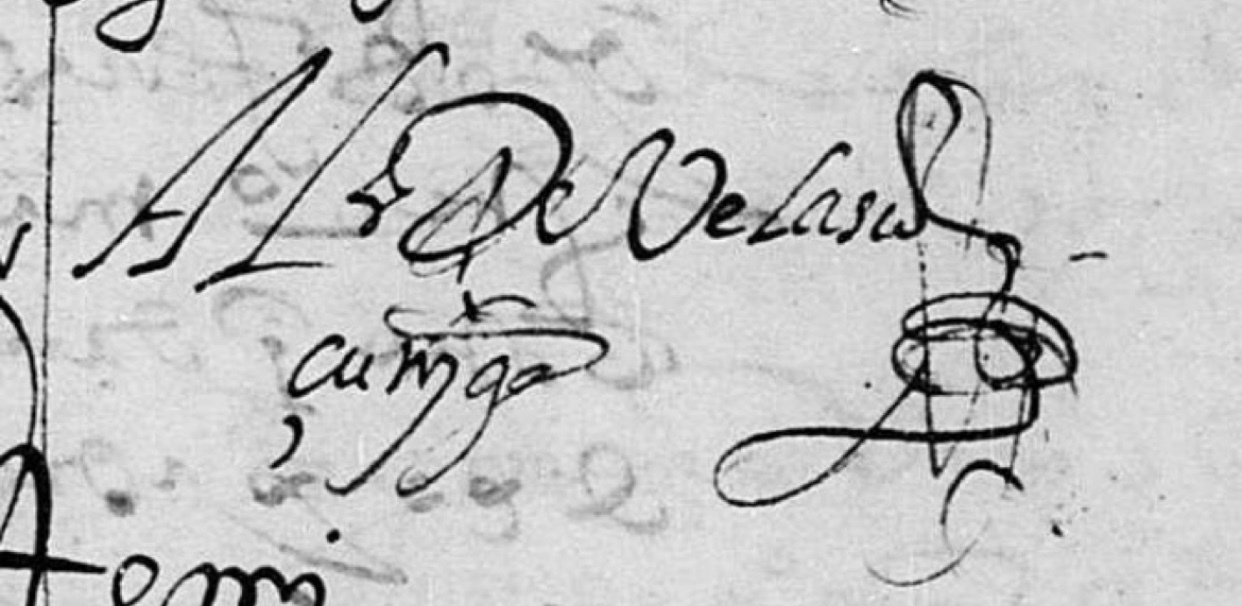 ALº De Velasco
çuñyga